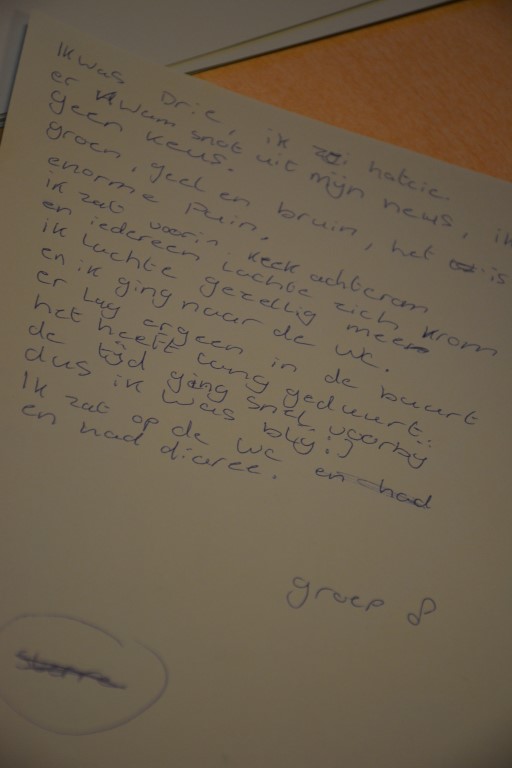 Ik was Drie, ik zei hatcie.
er kwam snot uit mijn neus, ik
geen keus.
groen, geel en bruin, het is
enorme puin,
ik zat voorin, keek achterom
en iedereen lachte zich krom
ik lachte gezellig mee
en ik ging naar de wc.
er lag ergeen in de buurt
het heeft lang geduurt.
de tijd ging snel voorbij
dus ik was blij :)
Ik zat op de wc en had
en had diaree.
groep 8